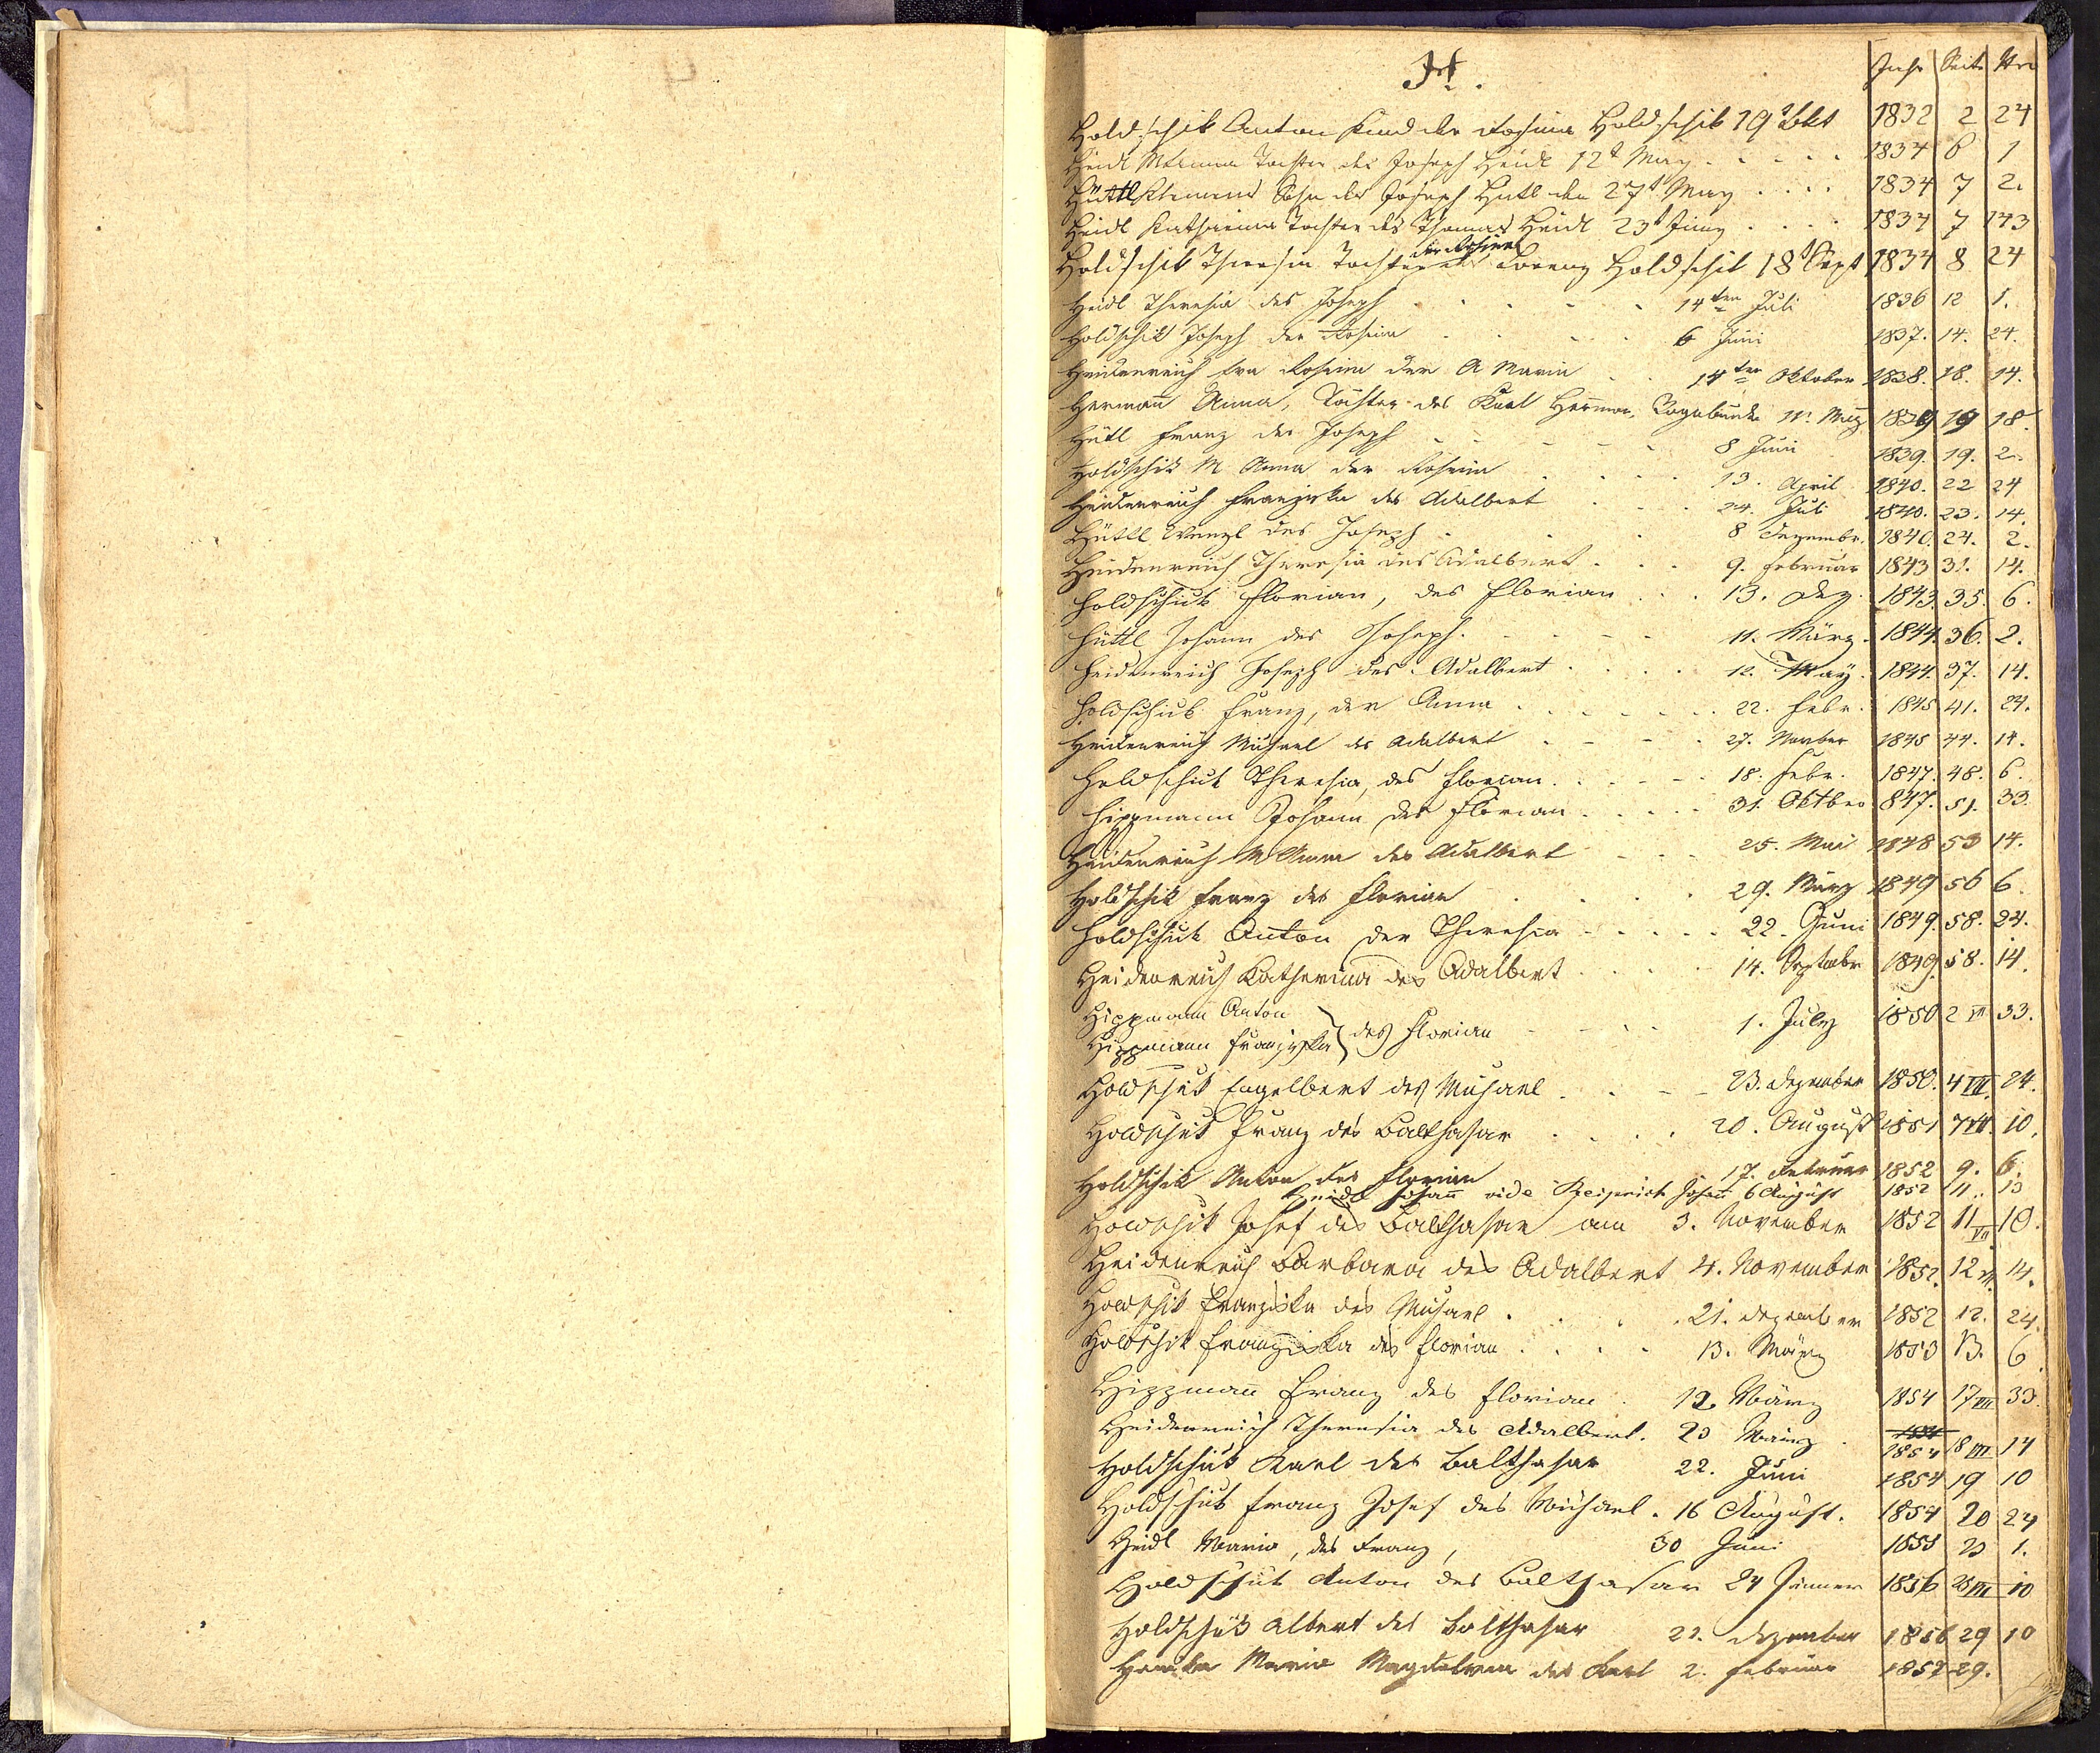 H.
Jahr Seite Nro
Holdschik Anton Kind der Rosina Holdschik 19 8br 1832 2 24
Heidl Tochter des Joseph Heidl 12t May 1834 6 1
Hüttl Klemens Sohn des Joseph Hutl den 27t May 1834 7 2.
Heidl Katharina Tochter des Thomas Heidl 23t Juny 1834 7 143
der Rosina
Holdschik Theresia Tochter des Lorenz Holdschik 18t Sept 1834 8 24
Heidl Theresia des Joseph 14ten Juli 1836 12 1.
Holdschik Joseph der Rosina 6 Juni 1837. 14. 24.
Heidenreich Eva Rosina der A Maria 14ten Oktober 1838. 18. 14.
Hermañ Anna, Tochter des Karl Herman, Vagabund 11. März 1839 19 18.
Hütl Franz des Joseph 8 Juni 1839. 19. 2.
Holdschik M Anna der Rosina 13. April 1840. 22 24
Heidenreich Franziska des Adalbert 24. Juli 1840. 23. 14.
Hüttl Wenzl des Joseph 8 Dezembr. 1840. 24. 2.
Heidenreich Theresia des Adalbert 9. Februar 1843 31. 14.
Holdschick Florian, des Florian 13. Dez. 1843. 35. 6.
Hüttl Johann des Joseph 11. März. 1844. 36. 2.
Heidenreich Joseph des Adalbert 12. May. 1844. 37. 14.
Holdschick Franz, der Anna 22. Febr. 1845 41. 24.
Heidenreich Michael des Adalbert 27. Novber 1845 44. 14.
Holdschick Theresia, des Florian 18. Febr. 1847. 48. 6.
Hippmann Johann des Florian 31. Oktber 847. 51. 33.
Heidenreich M Anna des Adalbert 25. Mai 1848 53 14.
Holdschik Franz des Florian 29. März 1849 56 6.
Holdschick Anton der Theresia 22. Juni 1849. 58. 24.
Heidenreich Katharina des Adalbert 14. Septembr 1849. 58. 14.
Hippmann Anton
Hippmann Franziska } des Florian 1. July 1850 2 VII 33.
Holdschik Engelbert des Michael 23. Dezember 1850. 4 VII. 24.
Holdschik Franz des Balthasar 20. August 1851 7 VII. 10.
Holdschik Anton des Florian 17. Februar 1852 9. 6.
Heidl Johañ vide Johañ 6 August 1852 11. 13
Holdschik Josef des Balthasar am 3. November 1852 11 VII 10.
Heidenreich Barbara des Adalbert 4. November 1852. 12 VII. 14.
Holdschik Franziska des Michael 21. Dezember 1852 12. 24.
Holdschik Franziska des Florian 13. März 1853 13. 6
Hippmañ Franz des Florian 12. März 1854 17 VII 33.
Heidenreich Theresia des Adalbert. 20 März 1854 18 VII 14
Holdschik Karl des Balthasar 22. Juni 1854 19 10
Holdschik Franz Josef des Michael. 16 August. 1854 20 24
Heidl Maria, des Franz, 30 Juni 1855 23 1.
Holdschik Anton des Balthasar 24 Jänner 1856 25 VII 10
Holdschik Albert des Balthasar 21. Dezember 1856 29 10
Maria Magdalena des Karl 2. Februar 1857 29.